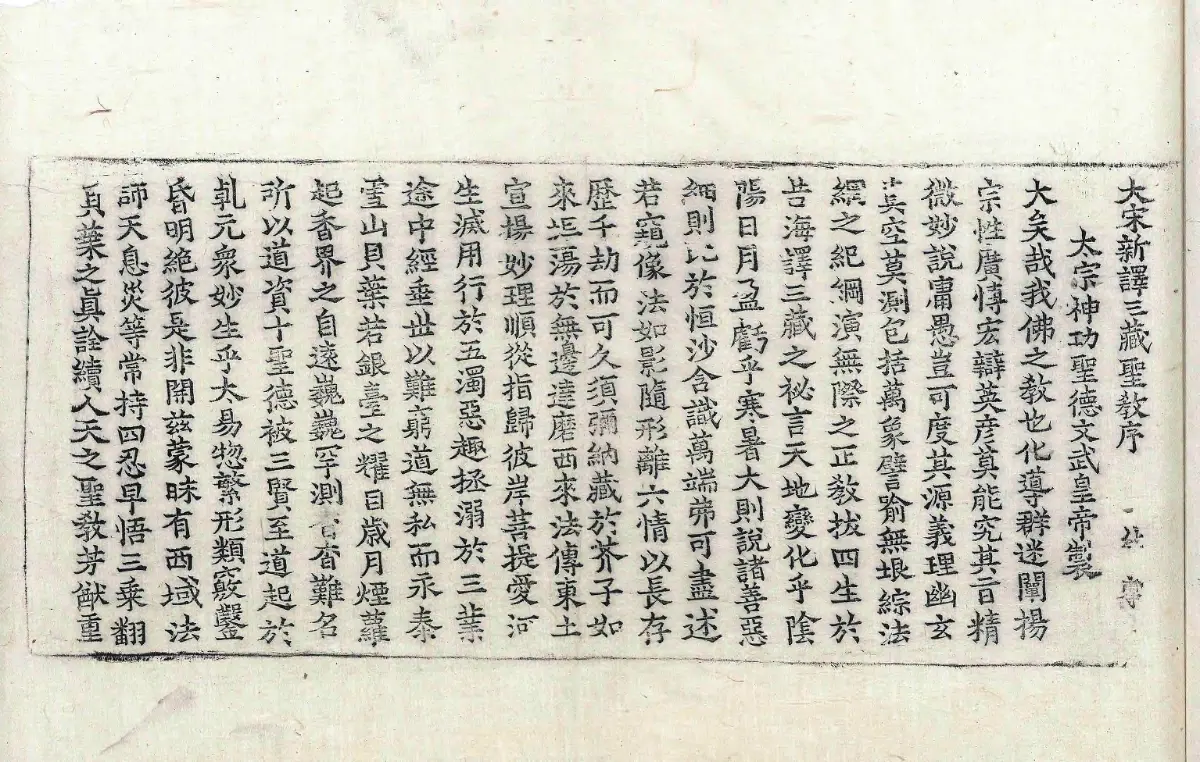 大宋新譯三藏聖教序
太宗神功聖德文武皇帝製
大矣哉我佛之教也化導群迷闡揚
宗性廣愽宏辯英彦莫能究其旨精
微妙說庸愚豈可度其源義理幽玄
真空莫測包括萬象譬喻無垠綜法
網之紀綱演無際之正教拔四生於
苦海譯三藏之祕言天地變化乎陰
陽日月盈虧乎寒暑大則說諸善惡
細則比於恒沙含識萬端弗可盡述
若窺像法如影隨形離六情以長存
歷千劫而可久須彌納藏於芥子如
來坦蕩於無邊達磨西來法傳東土
宣揚妙理順從指歸彼岸菩提愛河
生滅用行於五濁惡趣拯溺於三業
途中經垂世以難窮道無私而永泰
雪山貝葉若銀臺之耀目歲月煙蘿
起香界之自遠巍巍罕測杳杳難名
所以道資十聖德被三賢至道起於
乹元衆妙生乎太易揔繁形類竅鑿
昏明絶彼是非開兹蒙昧有西域法
師天息災等常持四忍早悟三乘翻
貝葉之真詮續人天之聖教芳猷重